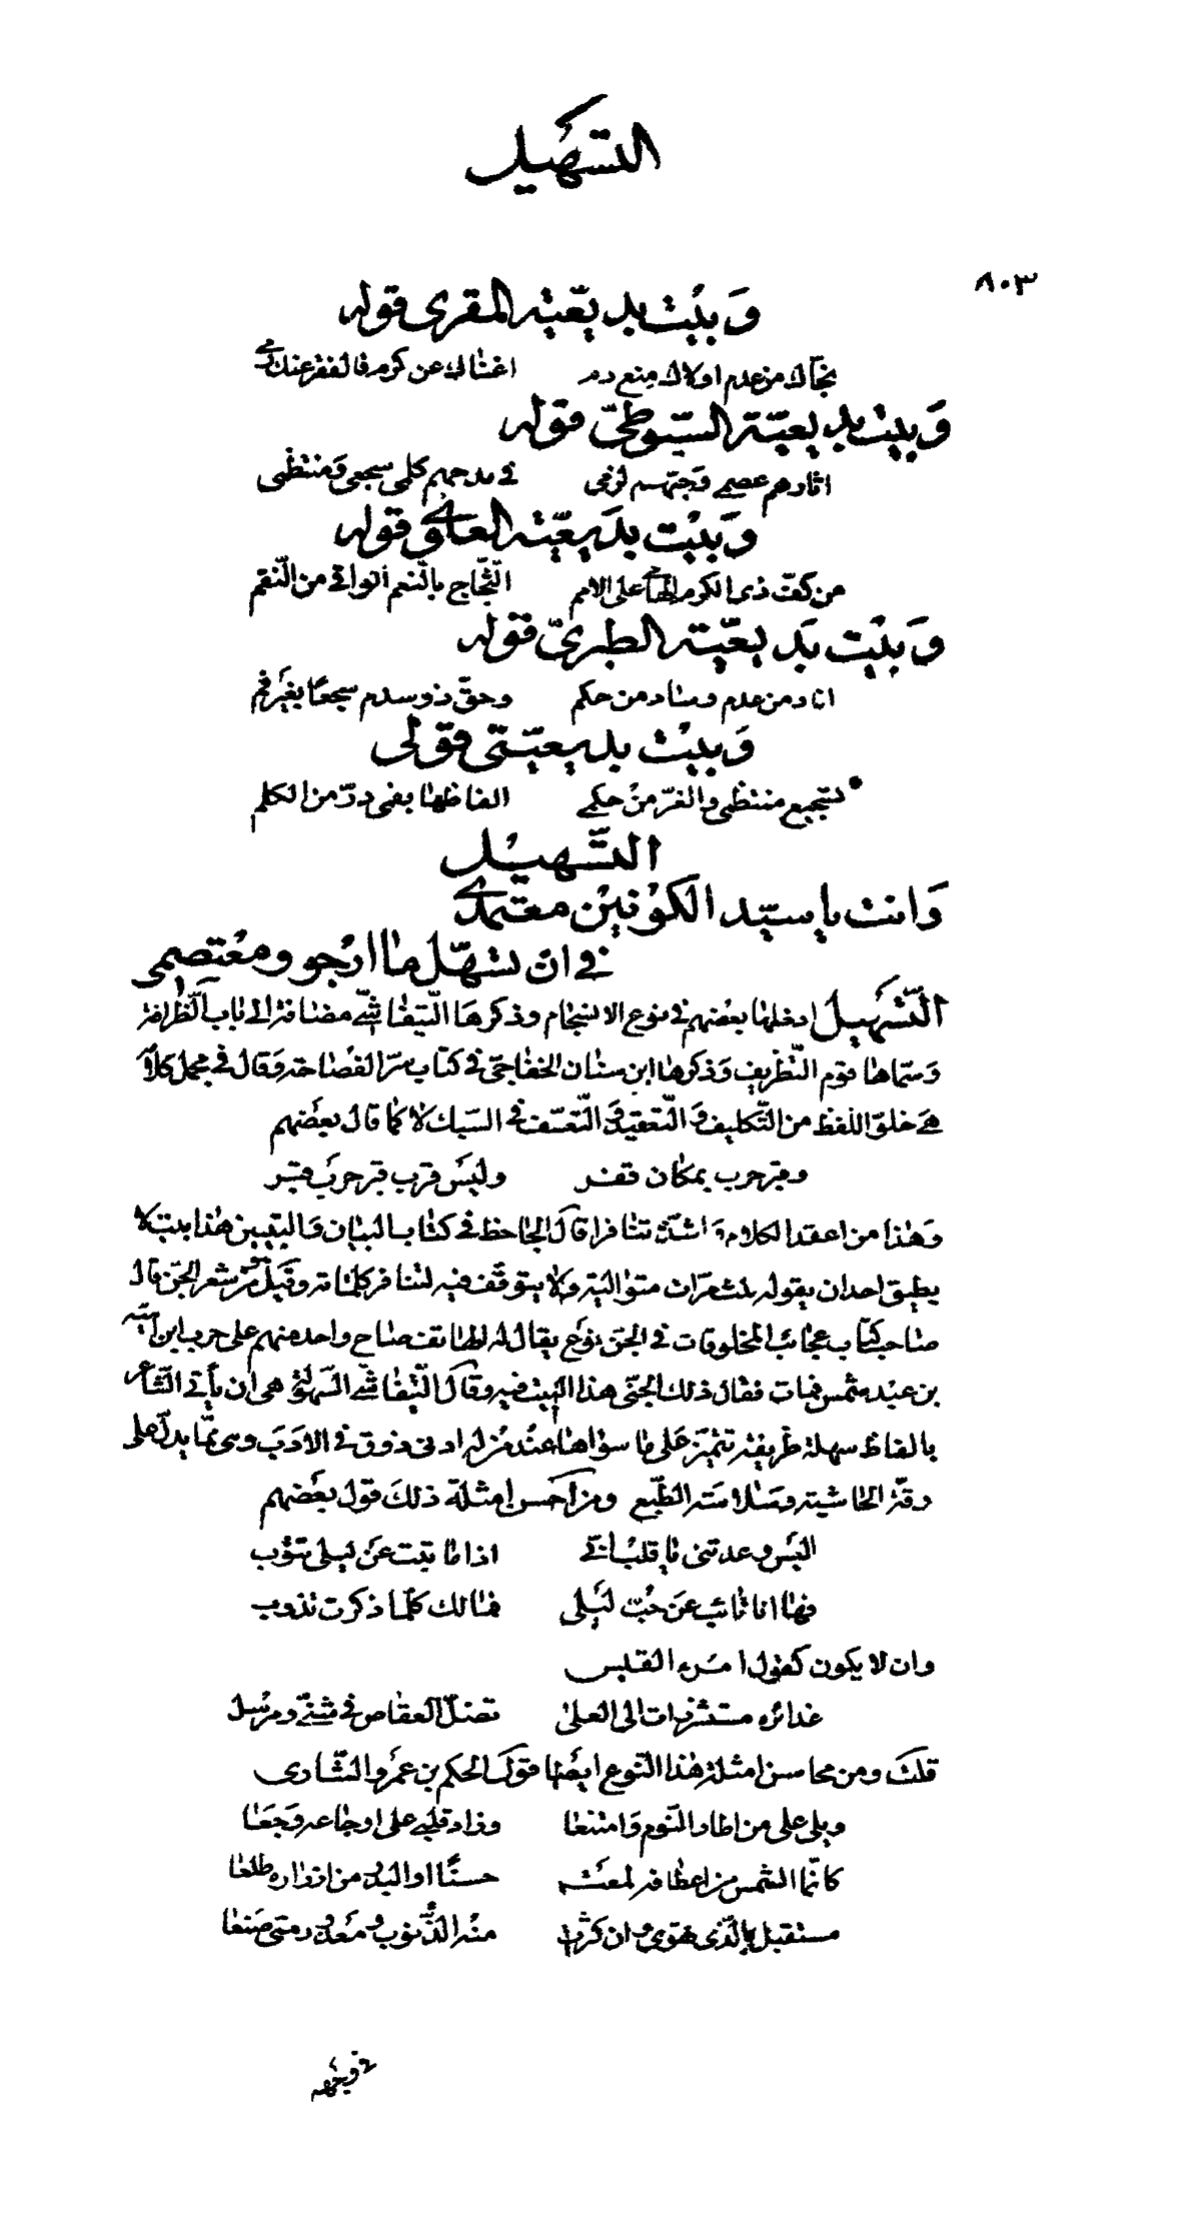 التسهيل
٨٠٣
وبيت بديعية المقري قوله
نجاك من عدم اولاك منع دم اغناك عن كرم فالفقر عنك
وبيت بديعية السيوطي قوله
اثارهم عصمي وجهتهم لزمي في مدحهم كلمي سجعي ومنتظمي
وبيت بديعية العلوي قوله
من كفّ ذي الكرم على الامم الثجّاج بالنعم الواقي من النقم
وبيت بديعية الطبري قوله
اناد من عدم وساد من حكم وحقّ ذو سدم سجعا بغير فم
وبيت بديعيتي فقولي
تسجيع منتظمي والغرّ من حكمي الفاظها بفمي درّ من الكلم
التسهيل
وانت يا سيّد الكونين معتمدي
في ان تسهّل ما ارجو ومعتصمي
التّسهيل ادخلها بعضهم في نوع الانسجام وذكرها التيفاشي مضافة الى باب الظرافة
وسمّاها قوم التّظريف وذكرها ابن سنان الخفاجي في كتاب سرّ الفصاحة وقال في مجمل كلامه
هي خلوّ اللفظ من التّكليف والتّعقيد والتّعسّف في السّبك لا كما قال بعضهم
وقبر حرب بمكان قفر وليس قرب قبر حرب قبر
وهذا من اعقد الكلام واشدّه تنافرا قال الجاحظ في كتاب البيان والتبيين هذا بيت لا
يطيق احد ان يقوله ثلث مرّات متوالية ولا يتوقّف فيه لتنافر كلماته وقيل هو من شعر الجنّ قال
صاحب كتاب عجائب المخلوقات في الجنّ نوع يقال له الهاتف صاح واحد منهم على حرب ابن اميّه
بن عبد شمس فمات فقال ذلك الجنّي هذا البيت فيه وقال التّيفاشي السّهولة هي ان يأتي الشّاعر
بالفاظ سهلة ظريفة تتميّز على ما سواها عند من له ادنى ذوق في الادب وهي ممّا يدلّ على
رقّة الحاشية وسلامة الطّبع ومن احسن امثلة ذلك قول بعضهم
اليس وعدتني يا قلب انّي اذا ما تبت عن ليلى تتوب
فها انا تائب عن حبّ ليلى فمالك كلّما ذكرت تذوب
وان لا يكون كقول امرء القيس
غدائره مستشزرات الى العلى تضلّ العقاص في مثنّى ومرسل
قلت ومن محاسن امثلة هذا النّوع ايضا قول الحكم بن عمرو الشّاري
ويلي على من اطار النّوم وامتنعا وزاد قلبي على اوجاعه وجعا
كانّما الشّمس من اعطافه لمعت حسنًا او البدر من ازراره طلعا
مستقبل بالّذي يهوى وان كثرت منه الذّنوب ومعذور متى صنعا
في وجهه